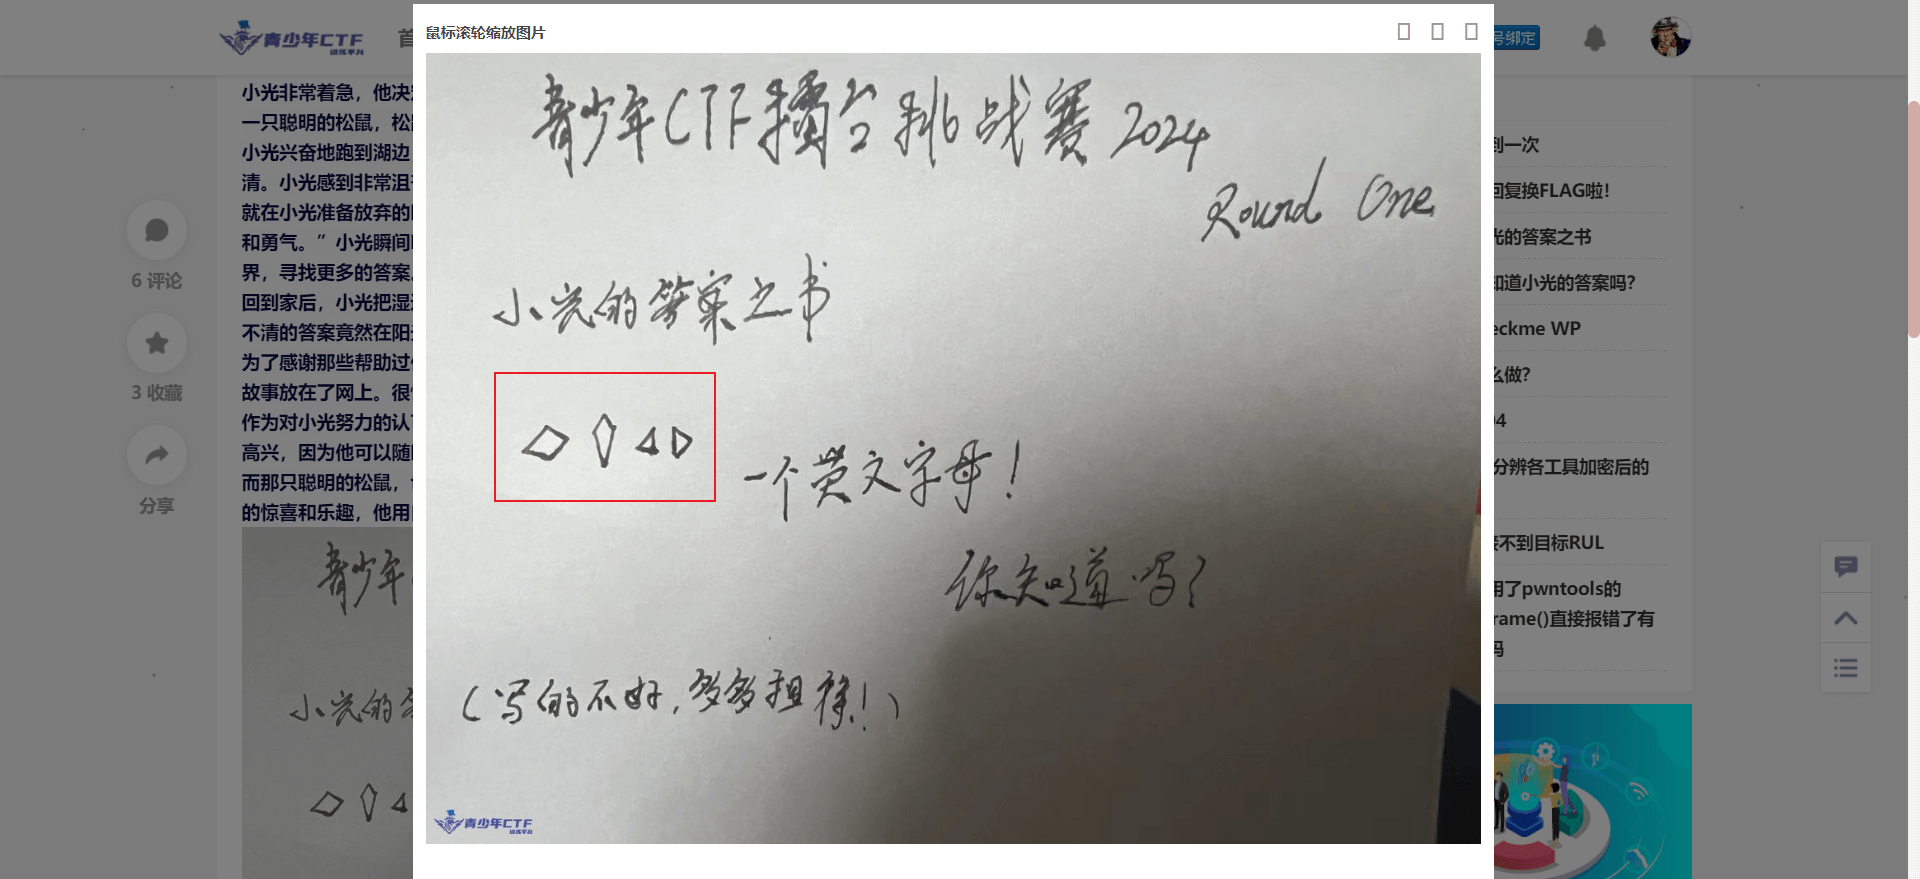 青少年CTF
训练平台
首
号绑定
鼠标滚轮缩放图片
小光非常着急，他决
一只聪明的松鼠，松
小光兴奋地跑到湖边
清。小光感到非常沮
就在小光准备放弃的
和勇气。”小光瞬间
界，寻找更多的答案
回到家后，小光把湿
不清的答案竟然在阳
为了感谢那些帮助过
故事放在了网上。很
作为对小光努力的认
高兴，因为他可以随
而那只聪明的松鼠，
的惊喜和乐趣，他用
6 评论
3 收藏
分享
青少年
小光的答
青少年CTF擂台挑战赛 2024
Round One
小光的答案之书
一个英文字母！
你知道吗？
（写的不好，多多担待！）
青少年CTF
训练平台
到一次
回复换FLAG啦！
光的答案之书
知道小光的答案吗？
eckme WP
么做？
04
分辨各工具加密后的
接不到目标RUL
用了pwntools的
rame()直接报错了有
吗